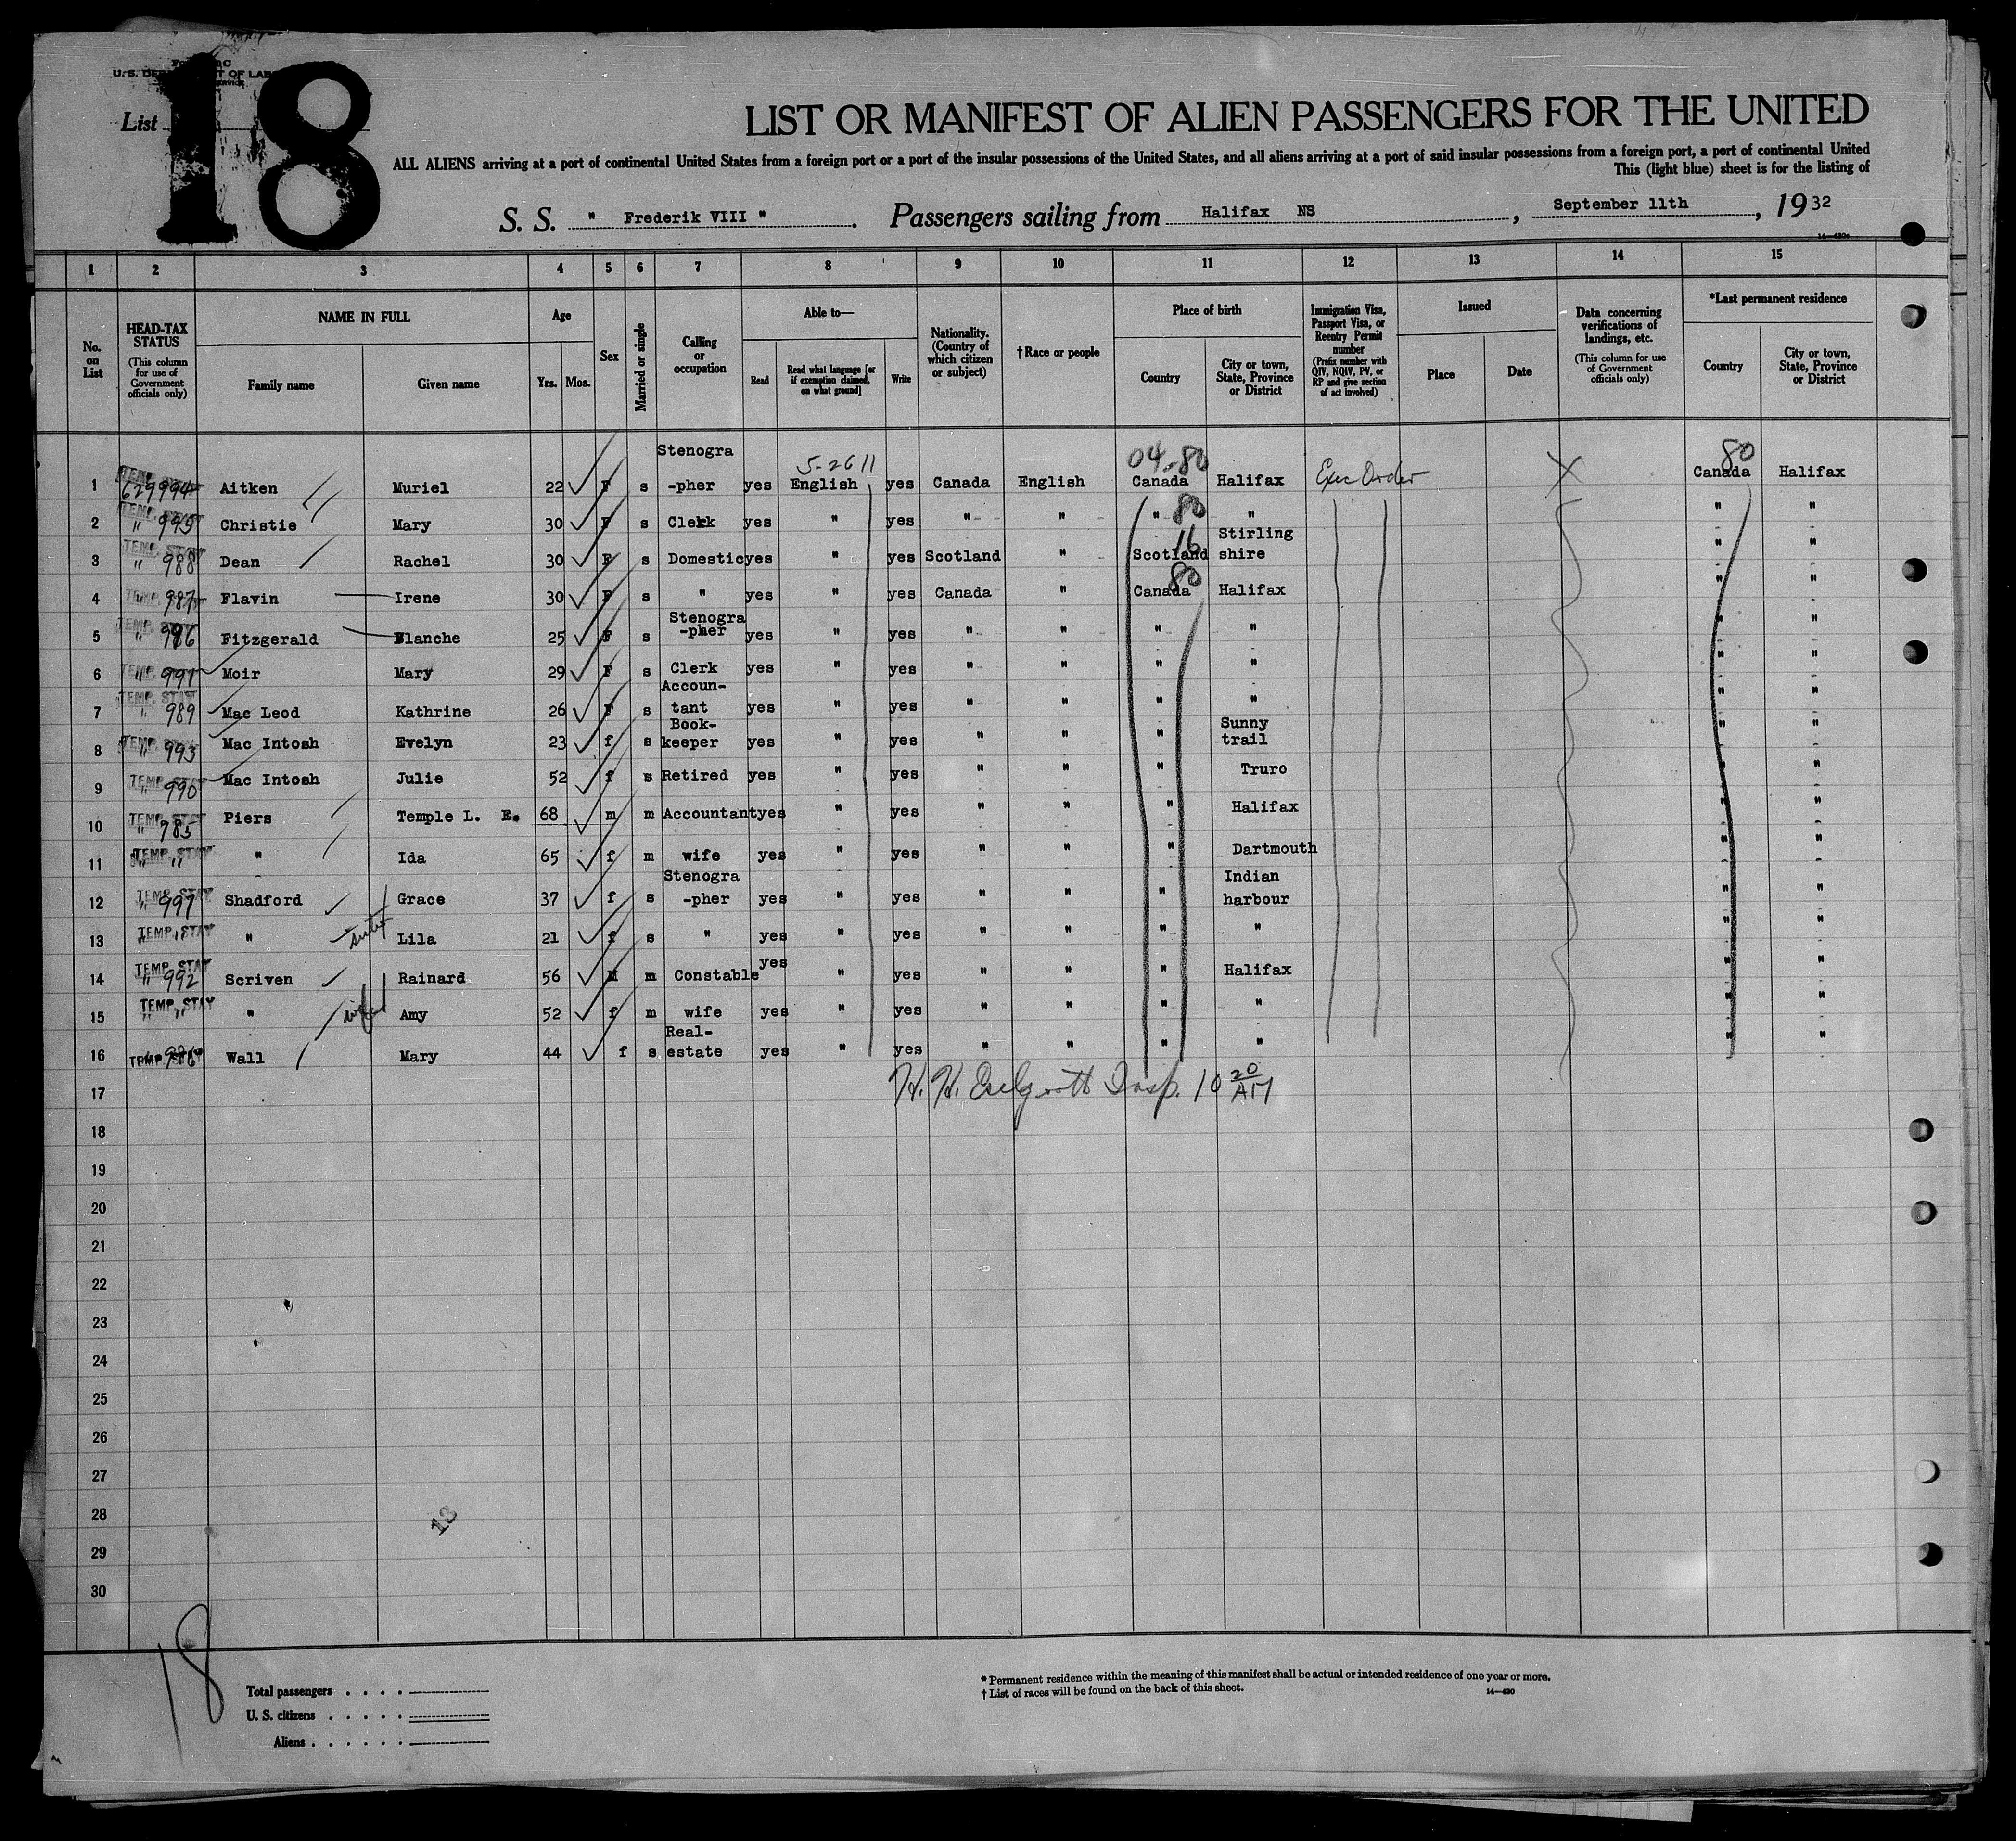 U.S. DEP OF LAB
18
List
LIST OR MANIFEST OF ALIEN PASSENGERS FOR THE UNITED
ALL ALIENS arriving at a port of continental United States from a foreign port or a port of the insular possessions of the United States, and all aliens arriving at a port of said insular possessions from a foreign port, a port of continental United
This (light blue) sheet is for the listing of
S. S. " Frederik VIII ". Passengers sailing from Halifax NS, September 11th, 1932
1 2 3 4 5 6 7 8 9 10 11 12 13 14 15
No. on List
HEAD-TAX STATUS (This column for use of Government officials only)
NAME IN FULL
Family name Given name
Age
Yrs. Mos.
Sex
Married or single
Calling or occupation
Able to—
Read Read what language [or if exemption claimed, on what ground] Write
Nationality. (Country of which citizen or subject)
†Race or people
Place of birth
Country City or town, State, Province or District
Immigration Visa, Passport Visa, or Reentry Permit number (Prefix number with QIV, NQIV, PV, or RP and give section of act involved)
Issued
Place Date
Data concerning verifications of landings, etc. (This column for use of Government officials only)
*Last permanent residence
Country City or town, State, Province or District
5-26 11 04-80 80
1 TEMP. STAY 629994 Aitken Muriel 22 F s Stenogra-pher yes English yes Canada English Canada Halifax Exec Order X Canada Halifax
2 TEMP. STAY " 995 Christie Mary 30 F s Clerk yes " yes " " " 80 " " "
3 TEMP. STAY " 988 Dean Rachel 30 F s Domestic yes " yes Scotland " Scotland 16 Stirling shire " "
4 TEMP. STAY " 987 Flavin Irene 30 F s " yes " yes Canada " Canada 80 Halifax " "
5 TEMP. STAY " 996 Fitzgerald Blanche 25 F s Stenogra-pher yes " yes " " " " " "
6 TEMP. STAY " 991 Moir Mary 29 F s Clerk yes " yes " " " " " "
7 TEMP. STAY " 989 Mac Leod Kathrine 26 F s Accoun-tant yes " yes " " " " " "
8 TEMP. STAY " 993 Mac Intosh Evelyn 23 f s Book-keeper yes " yes " " " Sunny trail " "
9 TEMP. STAY " 990 Mac Intosh Julie 52 f s Retired yes " yes " " " Truro " "
10 TEMP. STAY " 985 Piers Temple L. E. 68 m m Accountant yes " yes " " " Halifax " "
11 TEMP. STAY " " " Ida 65 f m wife yes " yes " " " Dartmouth " "
12 TEMP. STAY " 997 Shadford Grace 37 f s Stenogra-pher yes " yes " " " Indian harbour " "
13 TEMP. STAY " " " sister Lila 21 f s " yes " yes " " " " " "
14 TEMP. STAY " 992 Scriven Rainard 56 M m Constable yes " yes " " " Halifax " "
15 TEMP. STAY " " " wife Amy 52 f m wife yes " yes " " " " " "
16 TEMP. STAY Wall Mary 44 f s Real-estate yes " yes " " " " " "
17 H. H. Insp. 10 20 AM
18
19
20
21
22
23
24
25
26
27
28
29
30
18
18
Total passengers
U. S. citizens
Aliens
* Permanent residence within the meaning of this manifest shall be actual or intended residence of one year or more.
† List of races will be found on the back of this sheet.
14—430